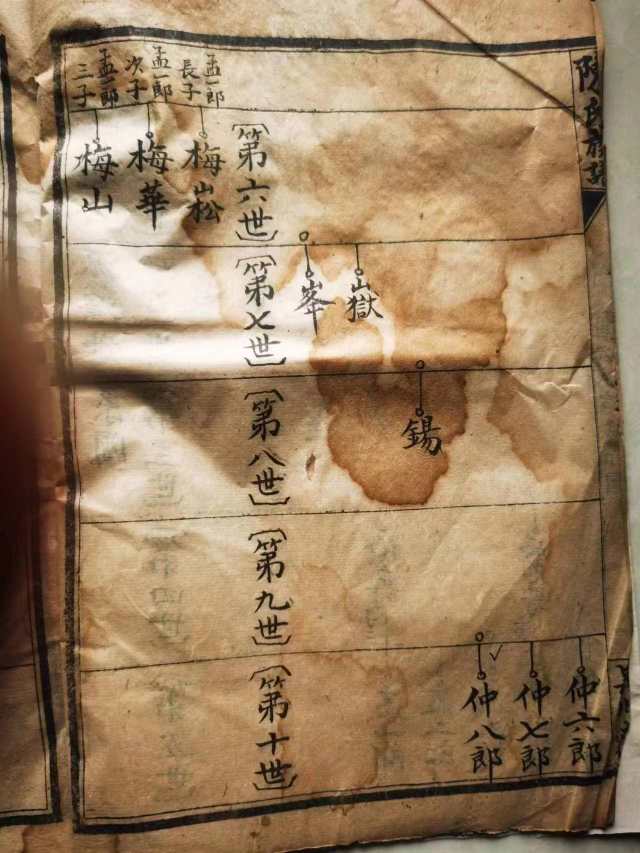 陳氏
〔第六世〕
孟一郎
長子
梅崧
孟一郎
次子
梅華
孟一郎
三子
梅山
嶽
峯
〔第七世〕
錫
〔第八世〕
〔第九世〕
仲六郎
仲七郎
仲八郎
〔第十世〕